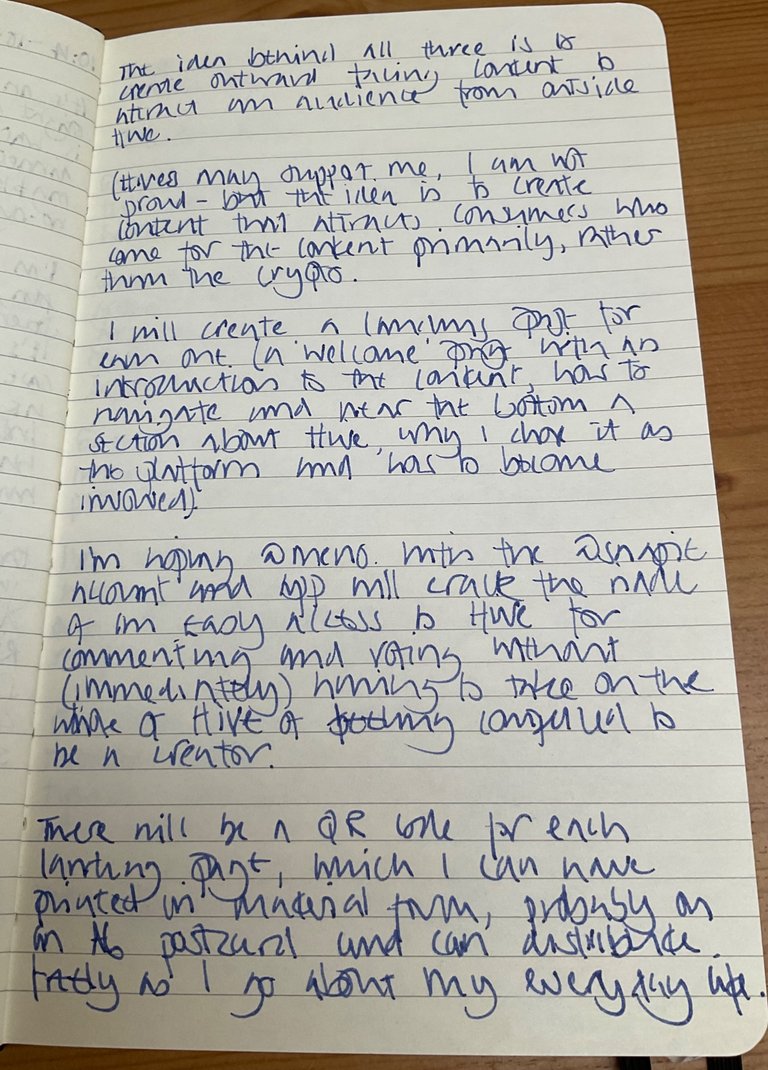 The idea behind all three is to
create outward facing content to
attract an audience from outside
Hive.
(Hivers may support me, I am not
proud - but the idea is to create
content that attracts consumers who
come for the content primarily, rather
than the crypto.
I will create a landing page for
each one (a 'welcome' page with an
introduction to the content, how to
navigate and near the bottom a
section about Hive, why I chose it as
the platform and how to become
involved).
I'm hoping @meno with the @snapie
account and app will crack the nut
of an easy access to Hive for
commenting and voting without
(immediately) having to take on the
whole of Hive or feeling compelled to
be a creator.
There will be a QR code for each
landing page, which I can have
printed in material form, probably as
an A6 postcard and can distribute
freely as I go about my everyday life.